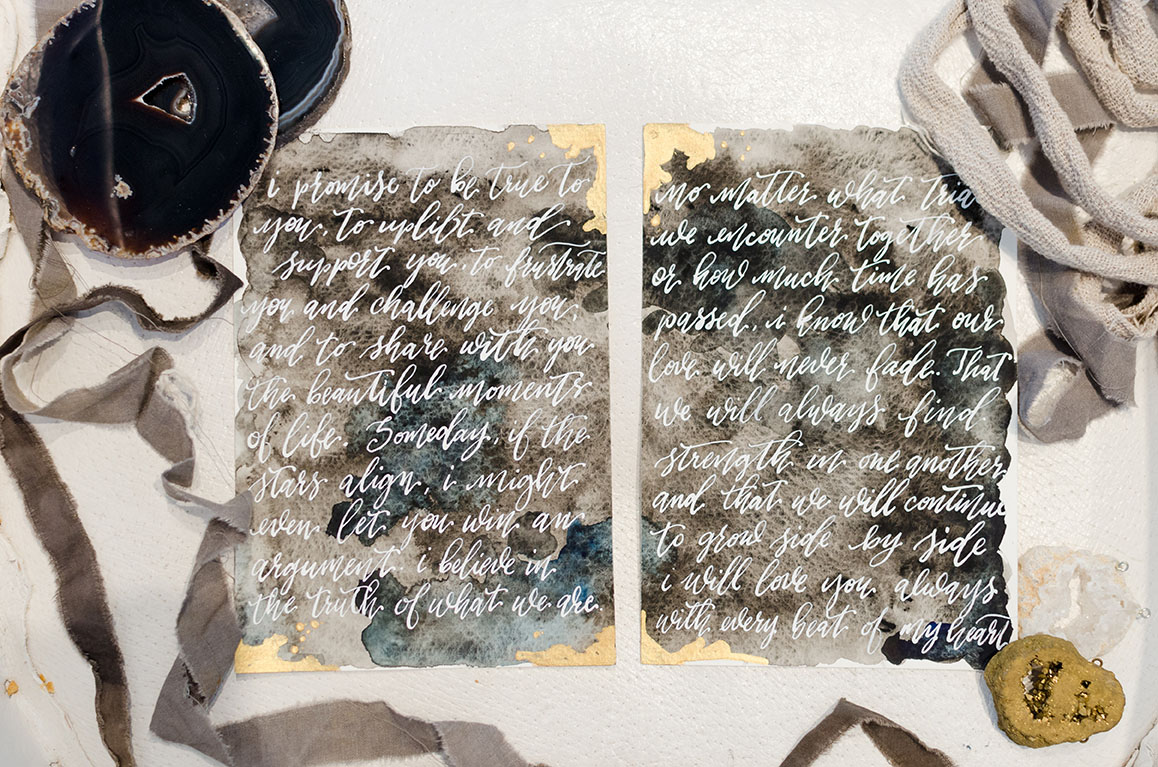 i promise to be true to
you, to uplift and
support you, to frustrate
you and challenge you,
and to share with you
the beautiful moments
of life. Someday, if the
stars align, i might
even let you win an
argument. i believe in
the truth of what we are.
no matter what tria
we encounter together
or how much time has
passed, i know that our
love will never fade. That
we will always find
strength in one another
and that we will continue
to grow side by side
i will love you always
with every beat of my heart